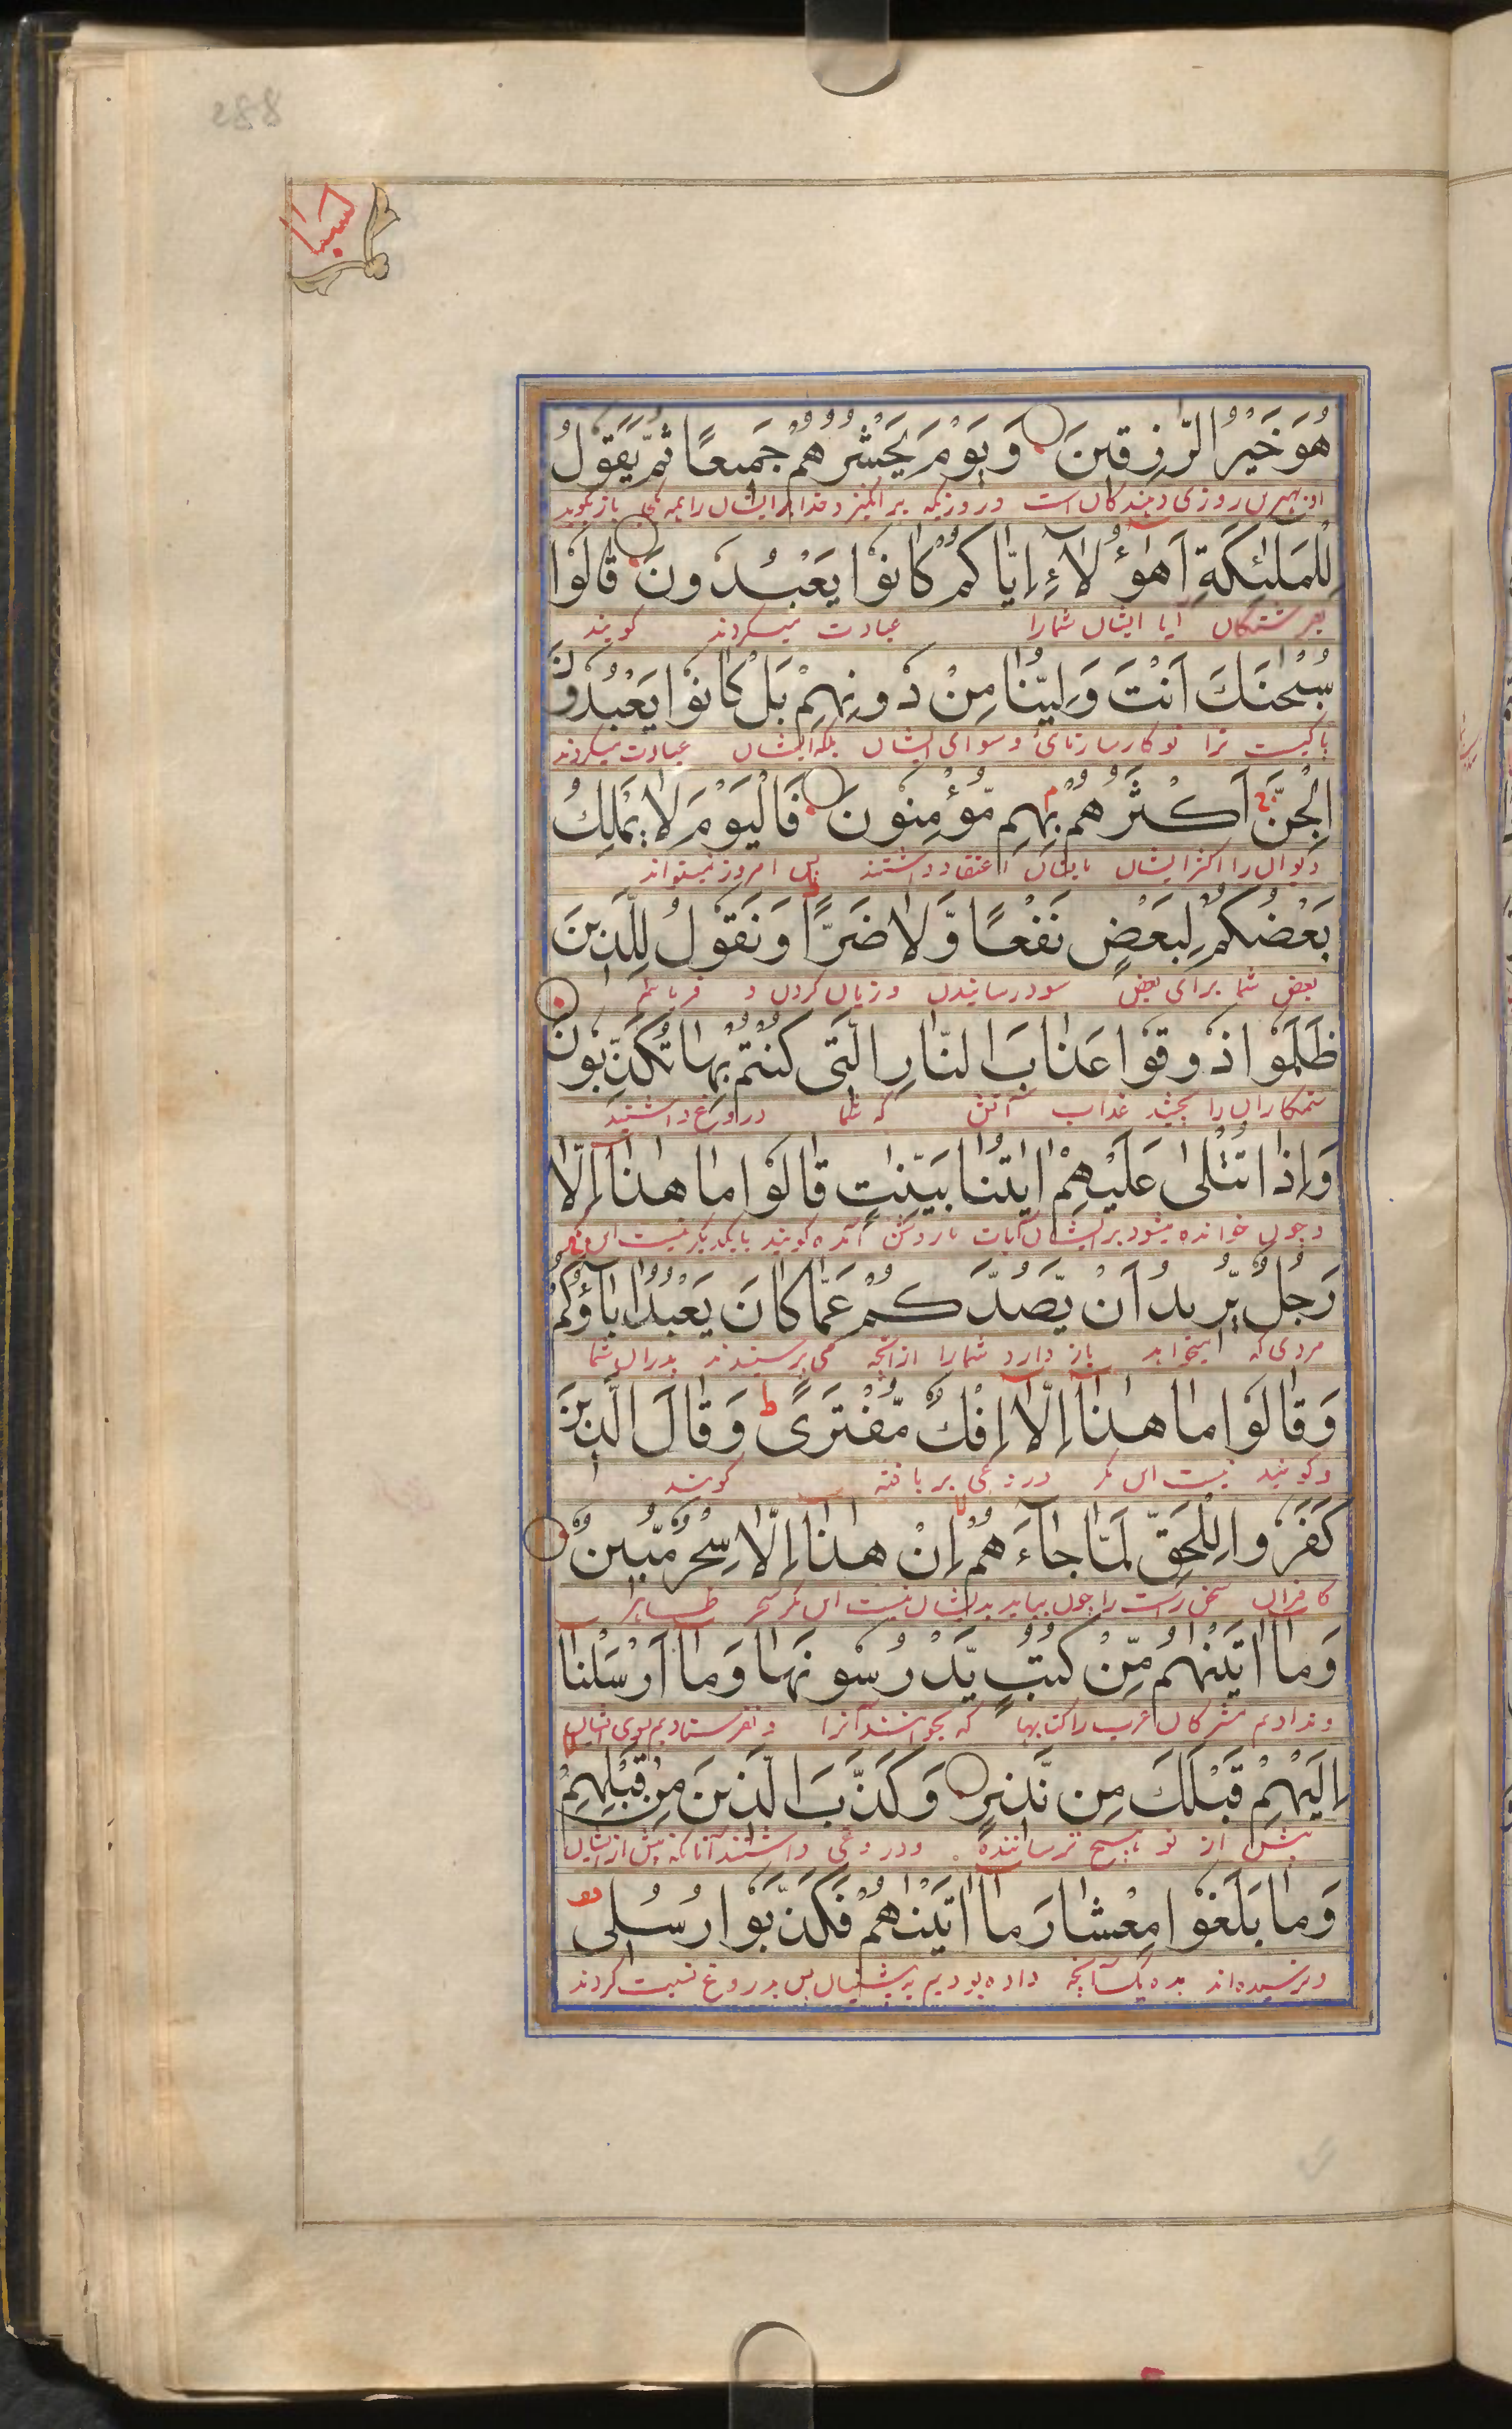 سبا
هُوَ خَيْرُ الرّٰزِقِينَ وَيَوْمَ يَحْشُرُهُمْ جَمِيعًا ثُمَّ يَقُولُ
او بهترین روزی دهندکان است و روزیکه برانکیزد خدا ایشان را همه باز بکوید
لِلْمَلٰئِكَةِ اَهٰؤُلَاءِ اِيَّاكُمْ كَانُوا يَعْبُدُونَ قَالُوا
بفرشتکان آیا ایشان شمارا عبادت میکردند کویند
سُبْحٰنَكَ اَنْتَ وَلِيُّنَا مِنْ دُونِهِمْ بَلْ كَانُوا يَعْبُدُونَ
پاکیست ترا تو کارساز مائی سوای ایشان بلکه ایشان عبادت میکردند
الْجِنَّ اَكْثَرُهُمْ بِهِمْ مُّؤْمِنُونَ فَالْيَوْمَ لَا يَمْلِكُ
دیوان را اکثر ایشان بایشان اعتقاد داشتند پس امروز نمیتواند
بَعْضُكُمْ لِبَعْضٍ نَفْعًا وَّلَا ضَرًّا وَنَقُولُ لِلَّذِينَ
بعض شما برای بعض سود رسانیدن و زیان کردن و فرمائیم
ظَلَمُوا ذُوقُوا عَذَابَ النَّارِ الَّتِى كُنْتُمْ بِهَا تُكَذِّبُونَ
ستمکاران را بچشید عذاب آتش که شما دروغ داشتید
وَاِذَا تُتْلٰى عَلَيْهِمْ اٰيٰتُنَا بَيِّنٰتٍ قَالُوا مَا هٰذَا اِلَّا
و چون خوانده میشود بر ایشان آیات ما روشن آمده کویند بایکدیکر نیست این مکر
رَجُلٌ يُّرِيدُ اَنْ يَّصُدَّكُمْ عَمَّا كَانَ يَعْبُدُ اٰبَاؤُكُمْ
مردی که میخواهد باز دارد شمارا از آنچه می پرستیدند پدران شما
وَقَالُوا مَا هٰذَا اِلَّا اِفْكٌ مُّفْتَرًى وَقَالَ الَّذِينَ
و کویند نیست این مکر دروغی بربافته کویند
كَفَرُوا لِلْحَقِّ لَمَّا جَاءَهُمْ اِنْ هٰذَا اِلَّا سِحْرٌ مُّبِينٌ
کافران سخن راست را چون بیاید بدیشان نیست این مکر سحر ظاهر
وَمَا اٰتَيْنٰهُمْ مِّنْ كُتُبٍ يَّدْرُسُونَهَا وَمَا اَرْسَلْنَا
و ندادیم مشرکان عرب را کتابها که بخوانند آنرا و نفرستادیم بسوی ایشان
اِلَيْهِمْ قَبْلَكَ مِن نَّذِيرٍ وَكَذَّبَ الَّذِينَ مِنْ قَبْلِهِمْ
پیش از تو هیچ ترساننده و دروغی داشتند آنانکه پیش از ایشان
وَمَا بَلَغُوا مِعْشَارَ مَا اٰتَيْنٰهُمْ فَكَذَّبُوا رُسُلِى
و نرسیده اند بده یک آنچه داده بودیم پیشینیان پس بدروغ نسبت کردند